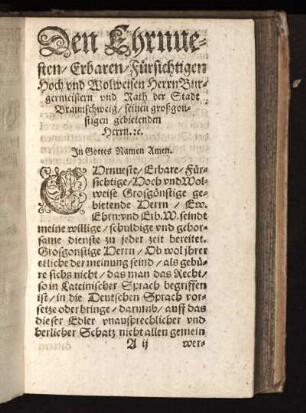 Den Ehrnue-
sten/ Erbaren/ Fürsichtigen
Hoch vnd Wolweisen Herrn Bür-
germeistern vnd Rath der Stadt
Braunschweig/ seinen großgön-
stigen gebietenden
Herrn. ꝛc.
In Gottes Namen Amen.
EHrnueste/ Erbare/ Für-
sichtige/ Hoch vnd Wol-
weise Großgönstige ge-
bietende Herrn/ Ew.
Ehrn: vnd Erb. W. seindt
meine willige/ schuldige vnd gehor-
same dienste zu jeder zeit bereitet.
Großgönstige Herrn/ Ob wol jhrer
etliche der meinung seind/ als gebü-
re sichs nicht/ das man das Recht/
so in Lateinischer Sprach begriffen
ist/ in die Deutschen Sprach vor-
setze oder bringe/ darumb/ auff das
dieser Edler vnaussprechlicher vnd
herlicher Schatz nicht allen gemein
A ij
wer-